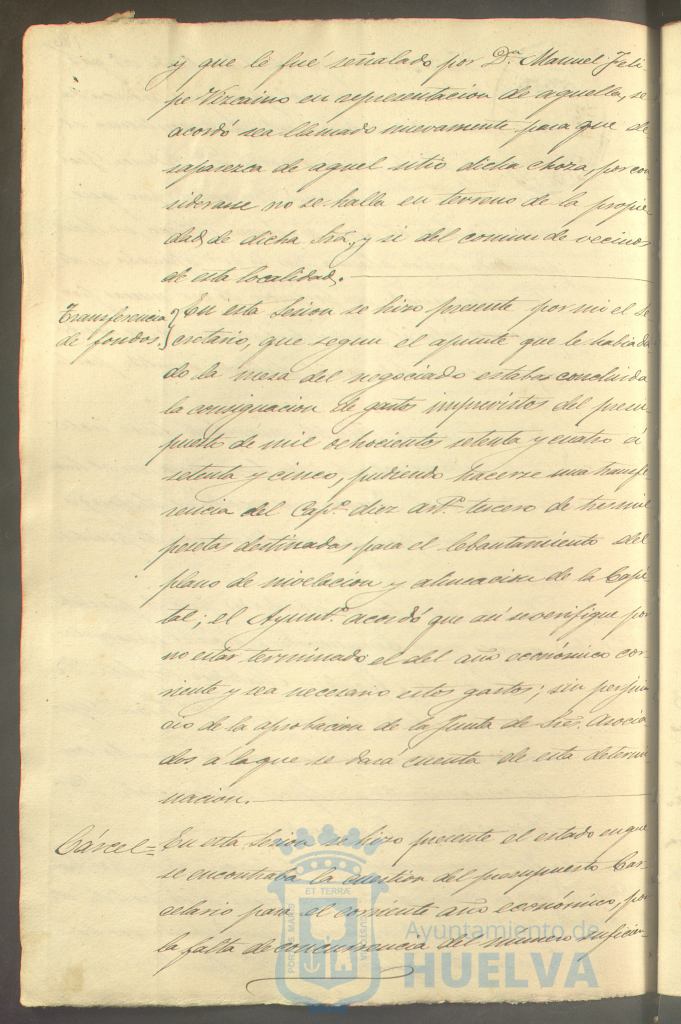 y que le fué señalado por Dn. Manuel Feli-
pe Vizcaino en representacion de aquella, se
acordó sea llamado nuevamente para que de
saparezca de aquel sitio dicha choza, por con
siderarse no se halla en terreno de la propie
dad de dicha Sra., y si del comun de vecinos
de esta localidad.
Transferencia
de fondos.
En esta Sesion se hizo presente por mi el Se
cretario, que segun el apunte que le habia da
do la mesa del negociado estaba concluida
la consignacion de gastos imprevistos del presu
puesto de mil ochocientos setenta y cuatro á
setenta y cinco, pudiendo hacerse una transfe
rencia del Capo. diez arto. tercero de tres mil
pesetas destinadas para el lebantamiento del
plano de nivelacion y alineacion de la Capi
tal; el Ayunto. acordó que asi se verifique por
no estar terminado el del año económico cor
riente y sea necesario estos gastos; sin perjui
cio de la aprobacion de la Junta de Sres. Asocia
dos á la que se dará cuenta de esta determi
nacion.
Cárcel=
En esta Sesion se hizo presente el estado en que
se encontraba la cuestion del presupuesto Car
celario para el corriente año económico, por
la falta de concurrencia del numero suficien-
PORTUS MARIS ET TERRÆ CUSTODIA
Ayuntamiento de
HUELVA